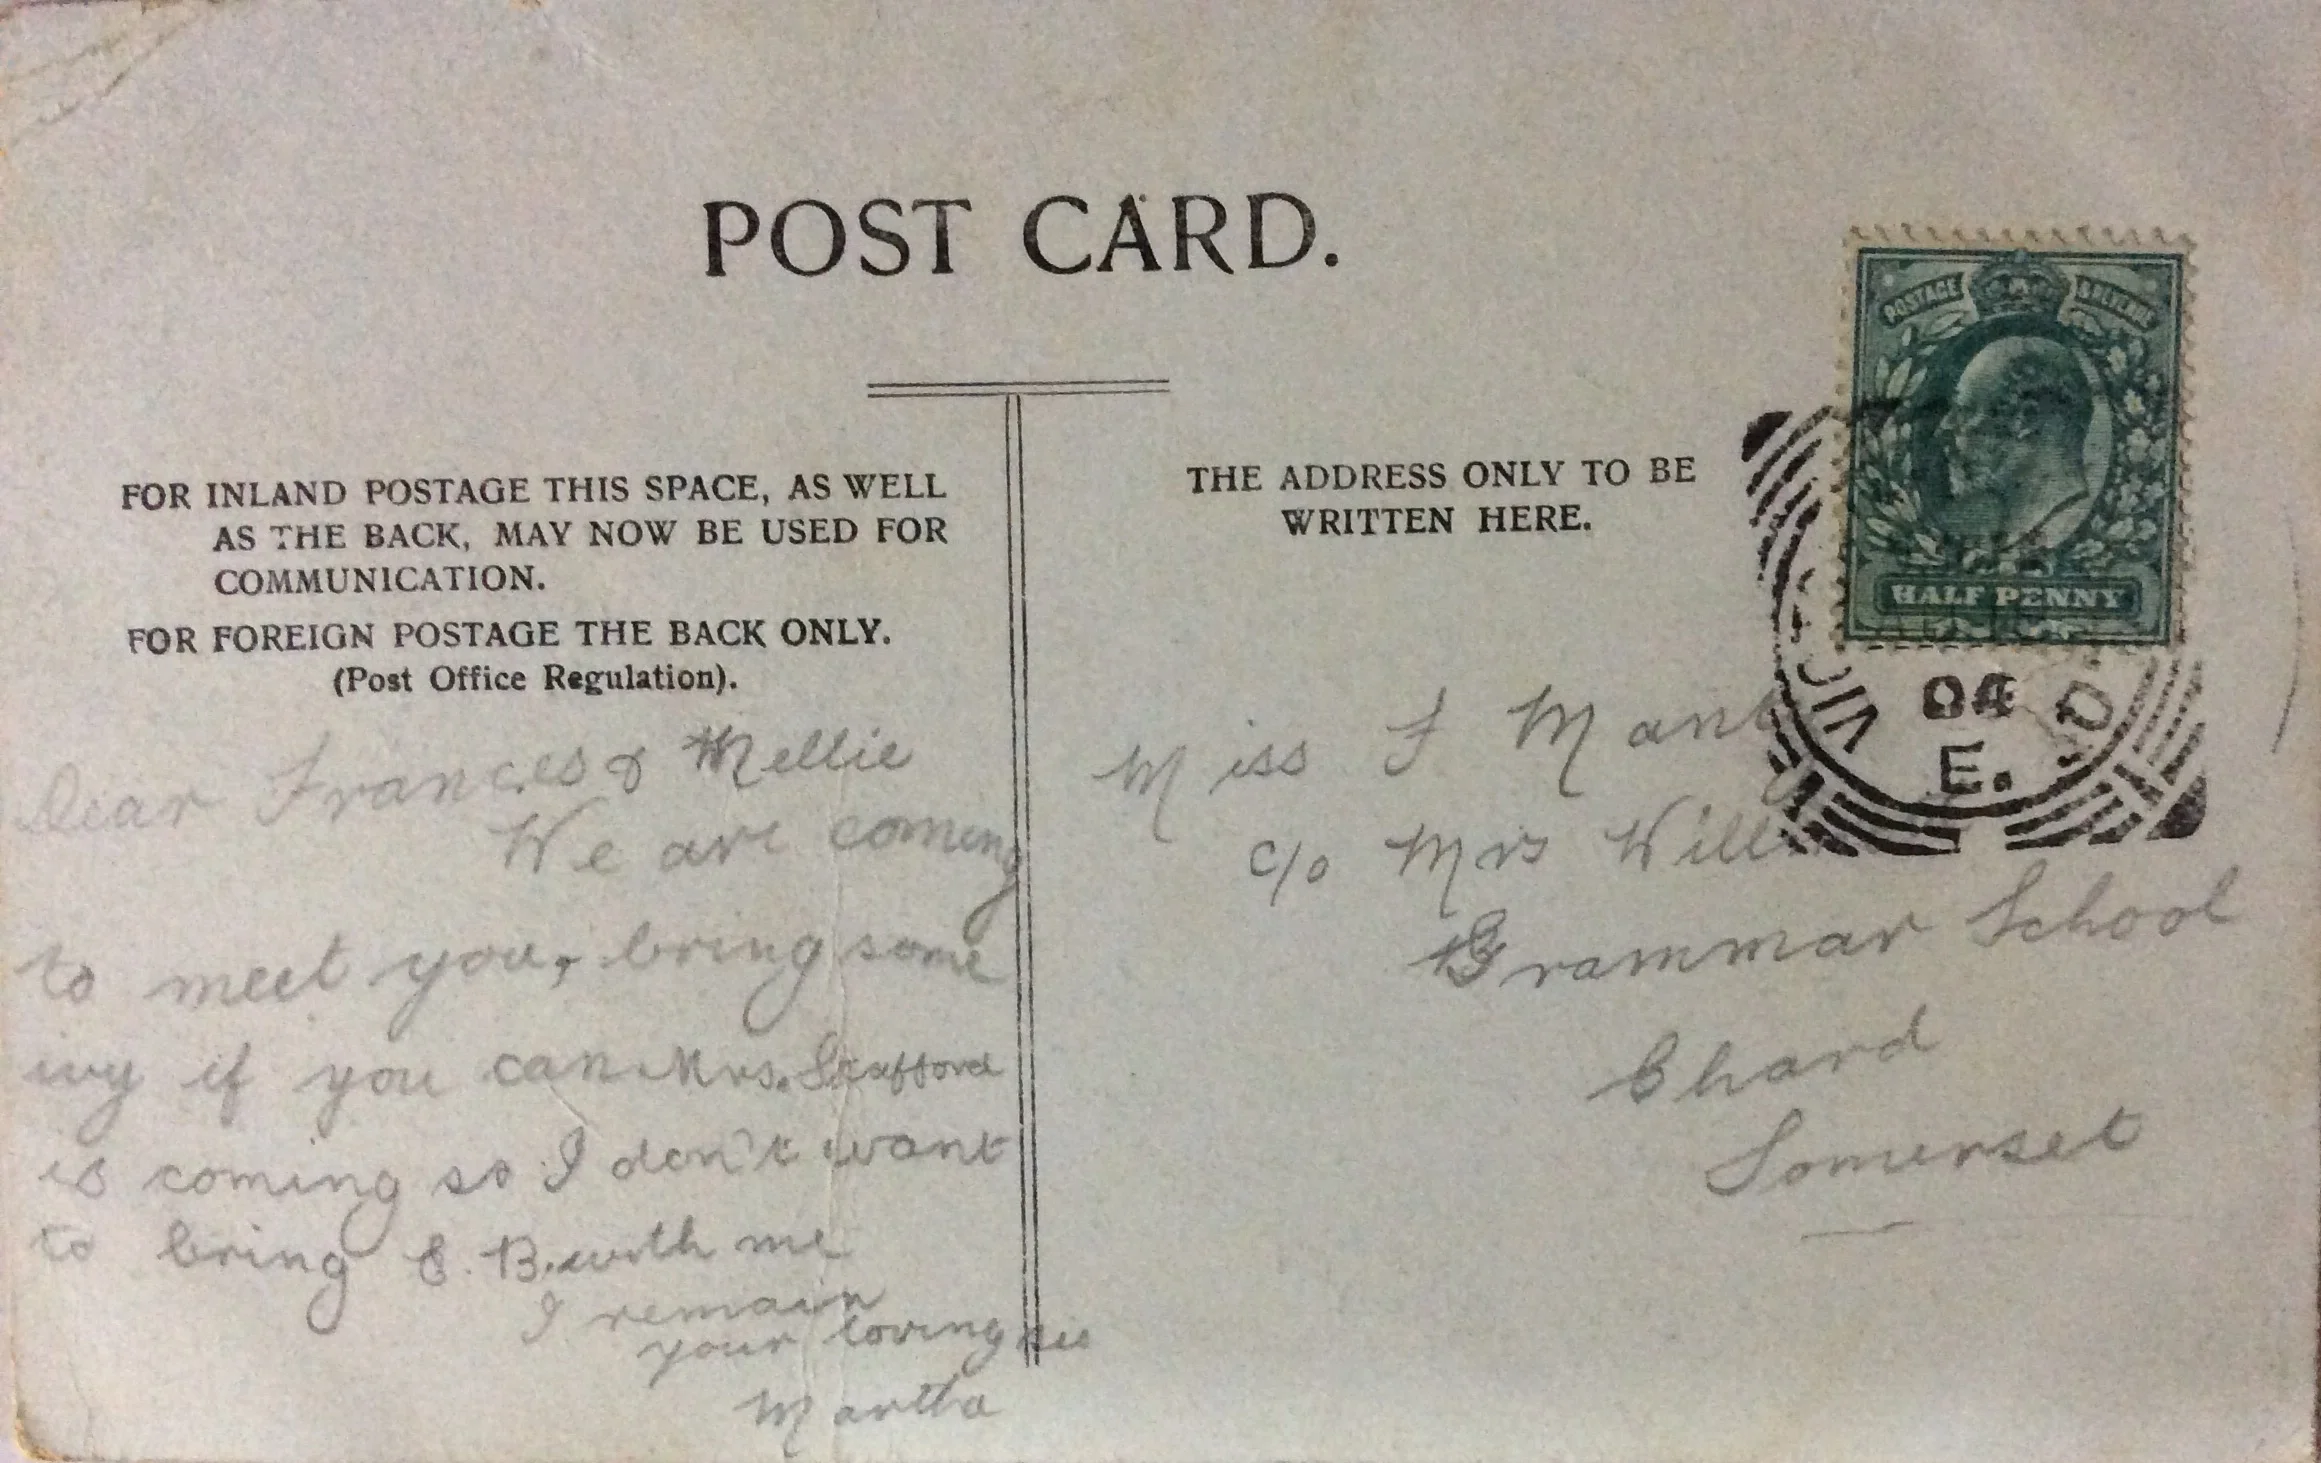 POST CARD.
FOR INLAND POSTAGE THIS SPACE, AS WELL
AS THE BACK, MAY NOW BE USED FOR
COMMUNICATION.
FOR FOREIGN POSTAGE THE BACK ONLY.
(Post Office Regulation).
Dear Frances & Nellie
We are coming
to meet you, bring some
ivy if you can Mrs. Stafford
is coming so I don't want
to bring E. B. with me
I remain
your loving sis
Martha
THE ADDRESS ONLY TO BE
WRITTEN HERE.
POSTAGE & REVENUE
HALF PENNY
04
E.
Miss F
c/o Mrs
Grammar School
Chard
Somerset